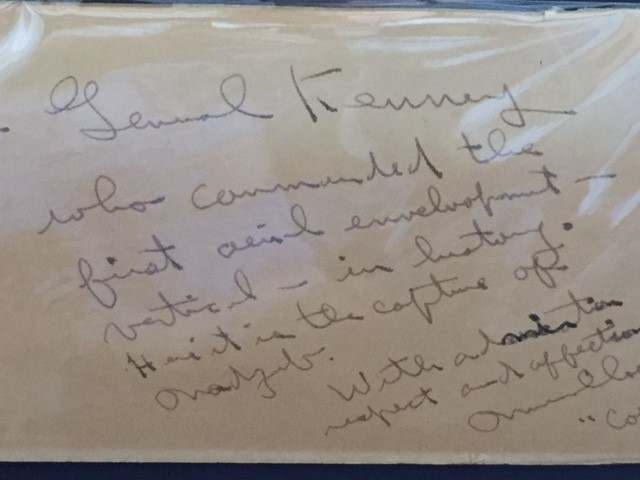 General Kenney
who commanded the
first aerial envelopment —
vertical — in history.
Here it is the capture of
Nadzab.
With admiration
respect and affection
"Co